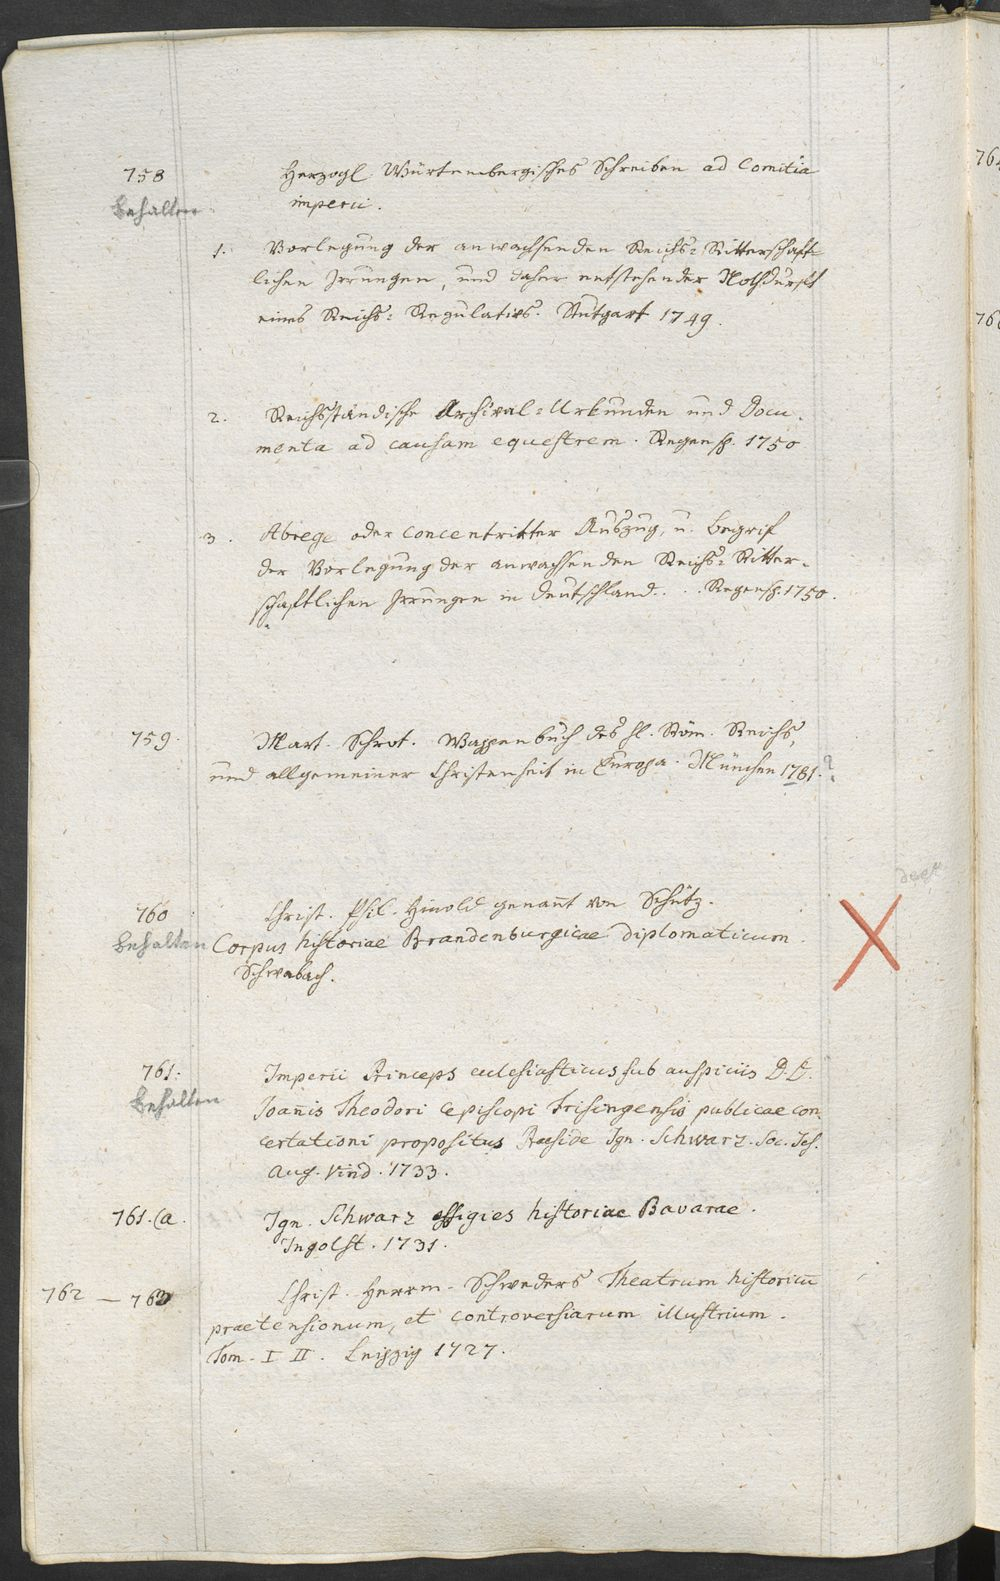 758 Herzogl. Würtembergisches Schreiben ad Comitia
behalten imperii.
1. Vorlegung der anwachsenden Reichs-Ritterschaft-
lichen Irrungen, und daher entstehender Nothdurft
eines Reichs-Regulativs. Stutgart 1749.
2. Reichsständische Archival-Urkunden und Docu-
menta ad causam equestrem. Regensp. 1750
3. Abrege oder concentrirter Auszug, u. Begrif
der Vorlegung der anwachsenden Reichs-Ritter-
schaftlichen Irrungen in Deutschland... Regensp. 1750.
759. Mart. Schrot. Wappenbuch des hl. Röm. Reichs,
und allgemeiner Christenheit in Europa. München 1781. ?
760 Christ. Phil. Sinold genant von Schütz.
behalten Corpus historiae Brandenburgicae diplomaticum.
Schwabach.
761. Imperii Princeps eclesiasticus sub auspiciis D.D.
behalten Joanis Theodori Episcopi Frisingensis publicae con-
certationi propositus Praeside Ign. Schwarz. Soc. Jes.
Aug. Vind. 1733.
761.(a. Ign. Schwarz effigies historiae Bavarae.
Ingolst. 1731.
762 — 763 Christ. Herrm. Schweders Theatrum historicu
praetensionum, et controversiarum illustrium.
Tom. I II. Leipzig 1727.